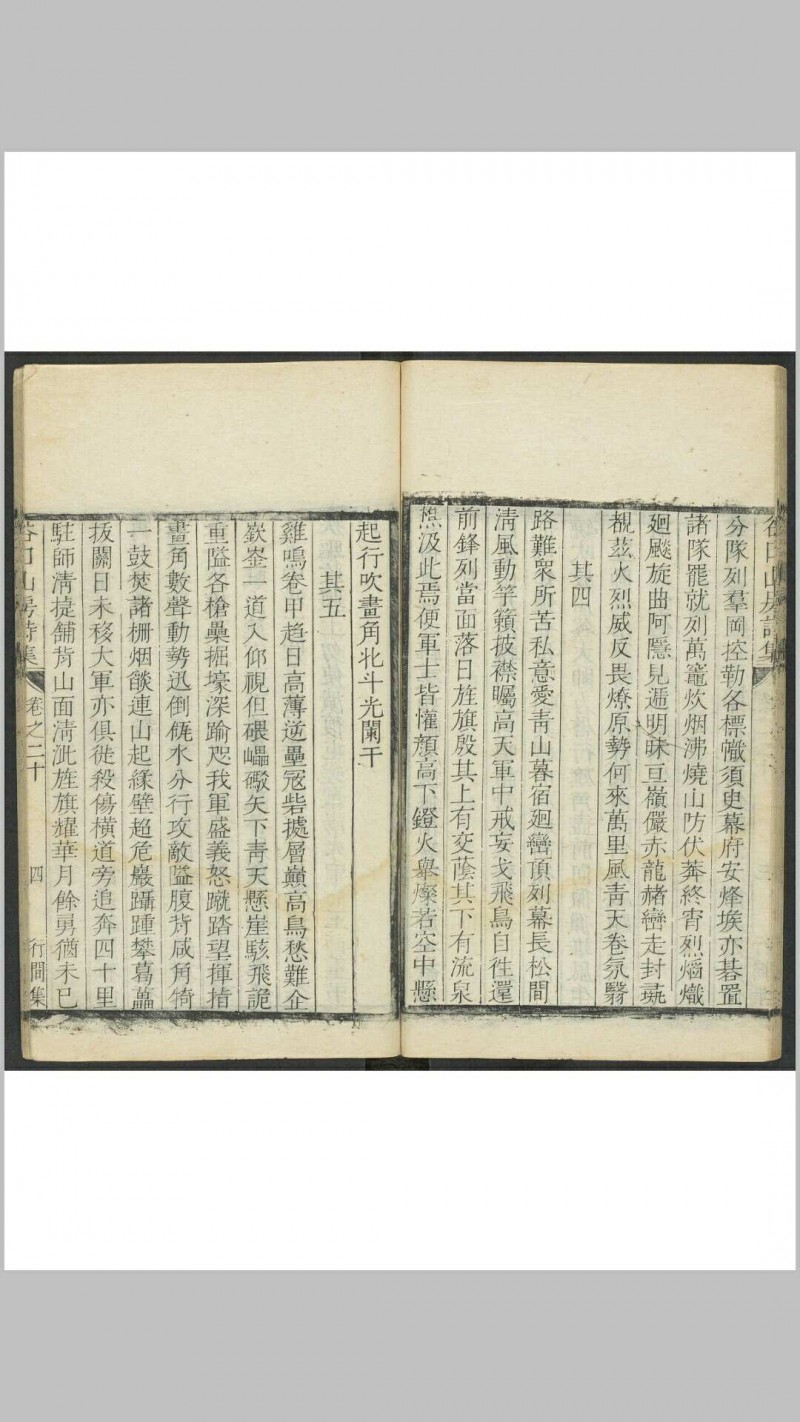 分隊列羣岡控勒各標幟須臾幕府安烽埃亦碁置
諸隊罷就列萬竈炊烟沸燒山防伏莽終宵烈熖熾
廻飈旋曲阿隱見遞明昧亘嶺儼赤龍赭巒走封
覩茲火烈威反畏燎原勢何來萬里風青天卷氛翳
其四
路難衆所苦私意愛青山暮宿廻巒頂列幕長松間
清風動竽籟披襟矚高天軍中戒妄戈飛鳥自徃還
前鋒列當面落日旌旗殷其上有交蔭其下有流泉
樵汲此焉便軍士皆懽顏高下鐙火舉燦若空中懸
起行吹畫角北斗光闌干
其五
雞鳴卷甲趋日高薄逆壘冦砦據層巔高鳥愁難企
嶔崟一道入仰視但磈礧礮矢下青天懸崖駭飛詭
重隘各槍壘掘壕深踰咫我軍盛義怒蹴踏望揮指
畫角數聲動勢迅倒瓴水分行攻敵隘腹背咸角犄
一鼓焚諸柵烟燄連山起緣壁超危巖躡踵攀葛藟
拔關日未移大軍亦俱徙殺傷橫道旁追奔四十里
駐師清捷舖背山面清泚旌旗耀華月餘勇猶未已
谷口山房詩集
卷之二十
四
行間集